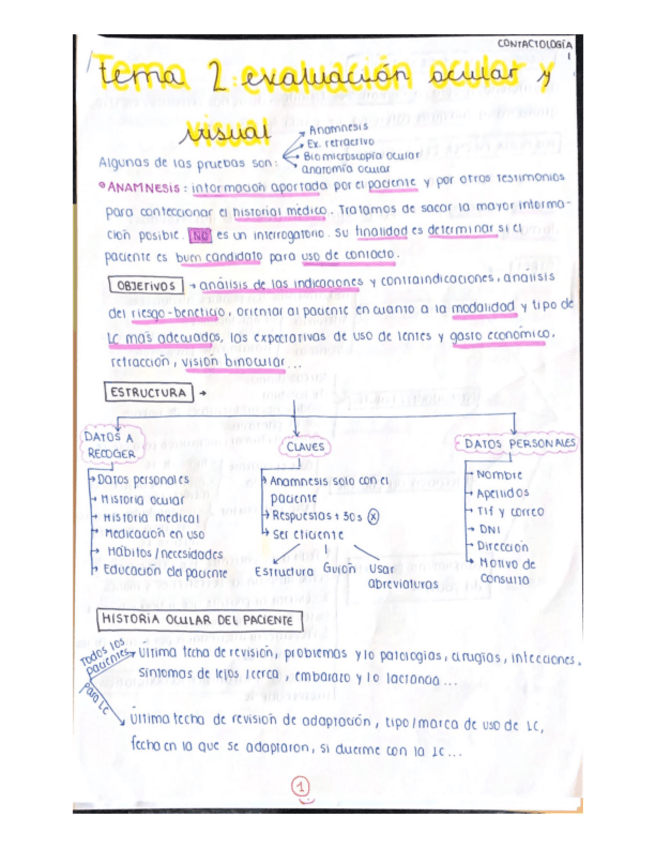 CONTACTOLOGÍA
1
Tema 2: evaluación ocular y
visual
Algunas de las pruebas son:
Anamnesis
Ex. refractivo
Biomicroscopía ocular
anatomía ocular
ANAMNESIS: información aportada por el paciente y por otros testimonios
para confeccionar el historial médico. Tratamos de sacar la mayor informa-
ción posible. NO es un interrogatorio. Su finalidad es determinar si el
paciente es buen candidato para uso de contacto.
OBJETIVOS → análisis de las indicaciones y contraindicaciones, análisis
del riesgo-beneficio, orientar al paciente en cuanto a la modalidad y tipo de
LC más adecuados, las expectativas de uso de lentes y gasto económico.
refracción, visión binocular...
ESTRUCTURA →
DATOS A
RECOGER
Datos personales
Historia ocular
Historia medical
Medicación en uso
Hábitos/necesidades
Educación del paciente
CLAVES
Anamnesis solo con el
paciente
Respuestas + 30s X
Ser eficiente
Estructura
Guión
Usar
abreviaturas
DATOS PERSONALES
Nombre
Apellidos
Tlf y correo
DNI
Dirección
Motivo de
consulta
HISTORIA OCULAR DEL PACIENTE
Todos los
pacientes
Última fecha de revisión, problemas y/o patologías, cirugías, infecciones.
Síntomas de lejos/cerca, embarazo y/o lactancia...
Para LC
Última fecha de revisión de adaptación, tipo/marca de uso de LC,
fecha en la que se adaptaron, si duerme con la LC...
1